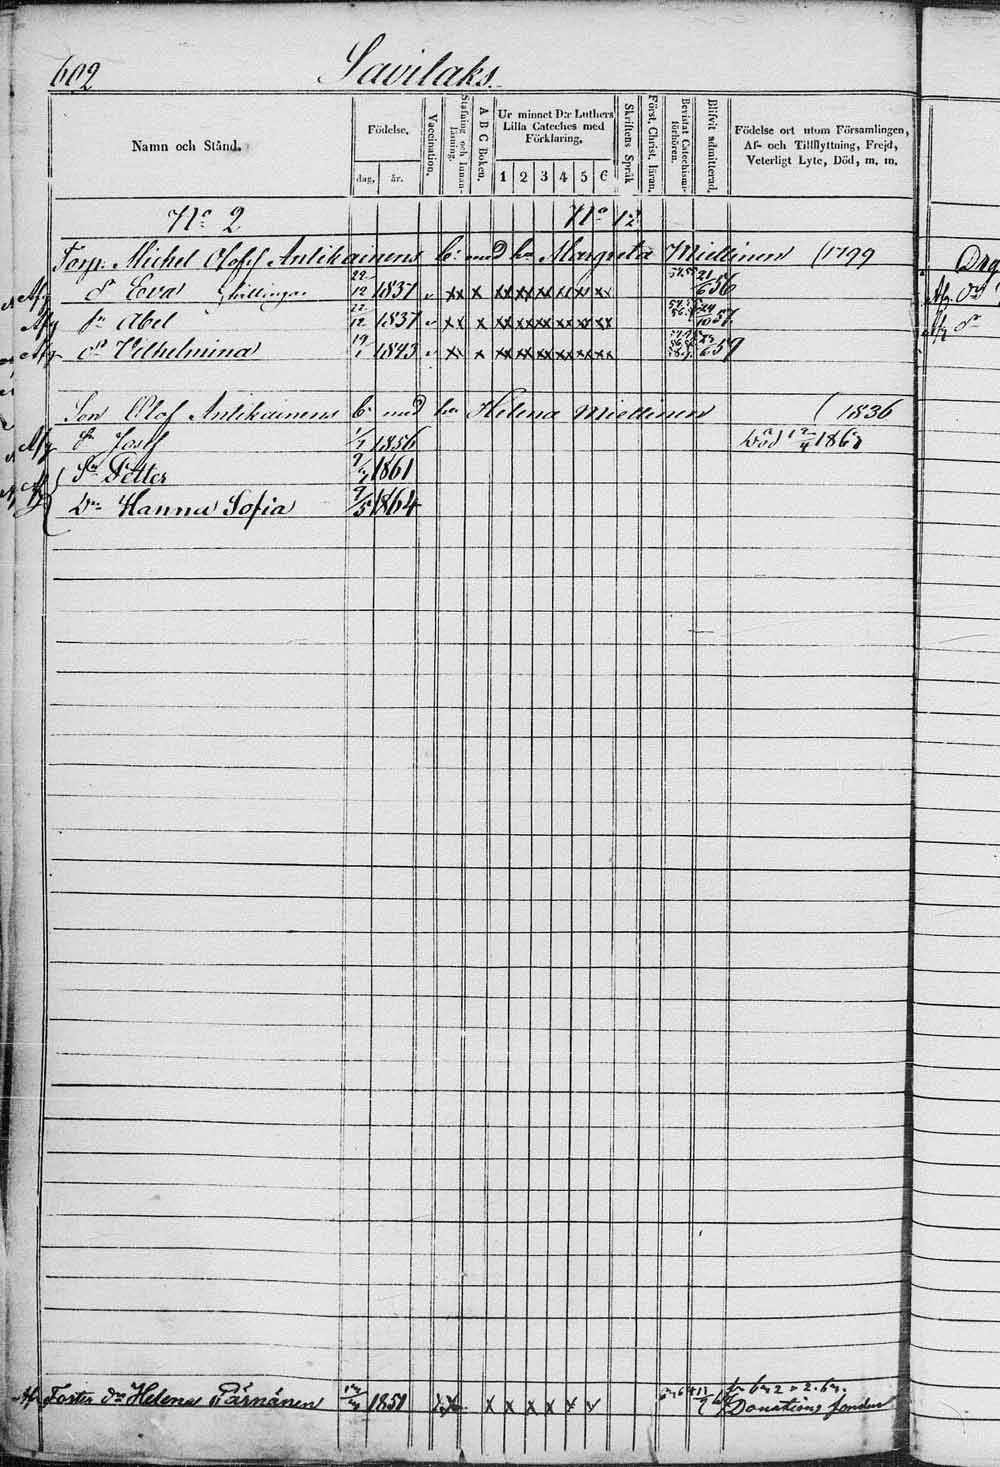 602 Savilaks.
Namn och Stånd.
Födelse,
dag, år.
Vaccination.
Stafning och Innanläsning.
A B C Boken.
Ur minnet D:r Luthers Lilla Cateches med Förklaring,
1 2 3 4 5 6
Skriftens Språk
Först. Christ. läran.
Bevistat Catechismiförhören.
Blifvit admitterad.
Födelse ort utom Församlingen, Af- och Tillflyttning, Frejd, Veterligt Lyte, Död, m. m.
No 2 No 12
Torp. Michel Olofss Antikainens b: med hu Margreta Miettinen (1799
Afg dr Eva tvillingar 22/12 1837 v xx x xx xx xx xx xx x 21/6 56
Afg sn Abel 22/12 1837 v xx x xx xx xx xx xx xx 24/10 57
Afg dr Vilhelmina 19/1 1843 v xx x xx xx xx xx xx xx 6 59
Son Olof Antikainens b: med hu Helena Miettinen (1836
Afg sn Josef 1856 död 186
Sn Petter 1861
Dr Hanna Sofia 9/5 1864
Foster dr Helena Pärnänen 1851 x x x x x x
Donations fonden